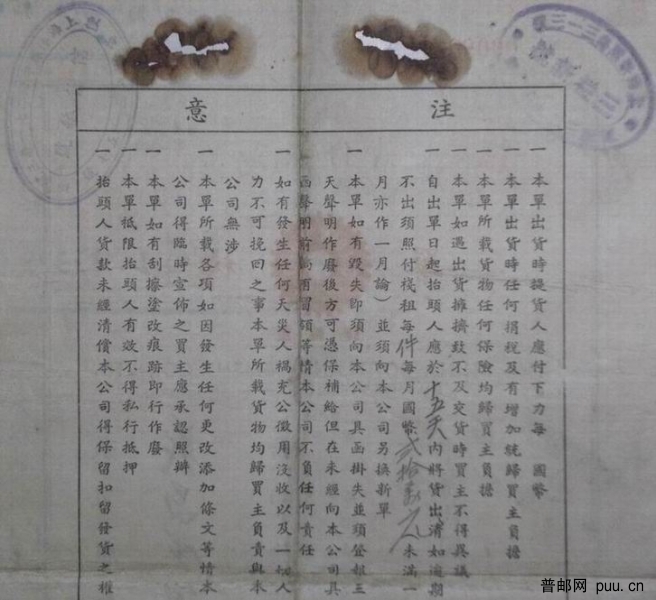 注意
一本單出貨時提貨人應付下力每 國幣
一本單出貨時任何捐稅及有增加統歸買主負擔
一本單所載貨物任何保險均歸買主負擔
一本單如遇出貨擁擠致不及交貨時買主不得異議
一自出單日起抬頭人應於十五天內將貨出清如逾期
不出須照付棧租每件每月國幣未滿一
月亦作一月論）並須向本公司另換新單
一本單如有毀失卽須向本公司具函掛失並須登報三
天聲明作廢後方可憑保補給但在未經向本公司具
函聲明前倘有冒領等情本公司不負任何責任
一如有發生任何天災人禍充公徵用沒收以及一切人
力不可挽回之事本單所載貨物均歸買主負責與本
公司無涉
一本單所載各項如因發生任何更改添加條文等情本
公司得臨時宣佈之買主應承認照辦
一本單如有刮擦塗改痕跡即行作廢
一本單祗限抬頭人有效不得私行抵押
一抬頭人貨款未經清償本公司得保留扣留發貨之權
普邮网 puu.cn